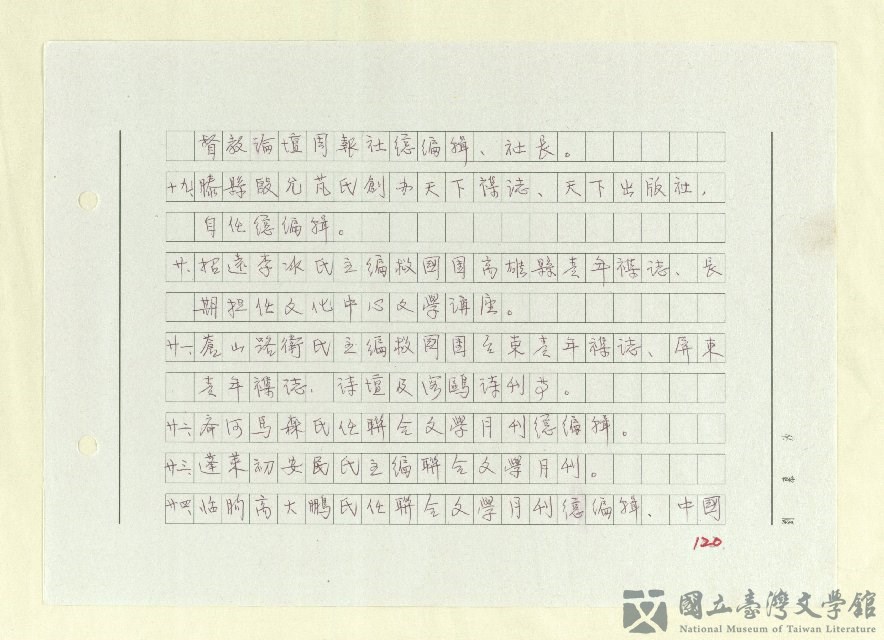 督教論壇周報社總編輯、社長。
十九、滕縣殷允芃氏創办天下襍誌、天下出版社，
自任總編輯。
廿、招遠李冰氏主編救國團高雄縣青年襍誌、長
期担任文化中心文學講座。
廿一、蒼山路衛氏主編救國團台東青年襍誌、屏東
青年襍誌，詩壇及海鷗詩刊等。
廿二、齐河馬森氏任聯合文學月刊總編輯。
廿三、蓬萊初安民氏主編聯合文學月刊。
廿四、临朐高大鵬氏任聯合文學月刊總編輯、中國
120
國立臺灣文學館
National Museum of Taiwan Literature